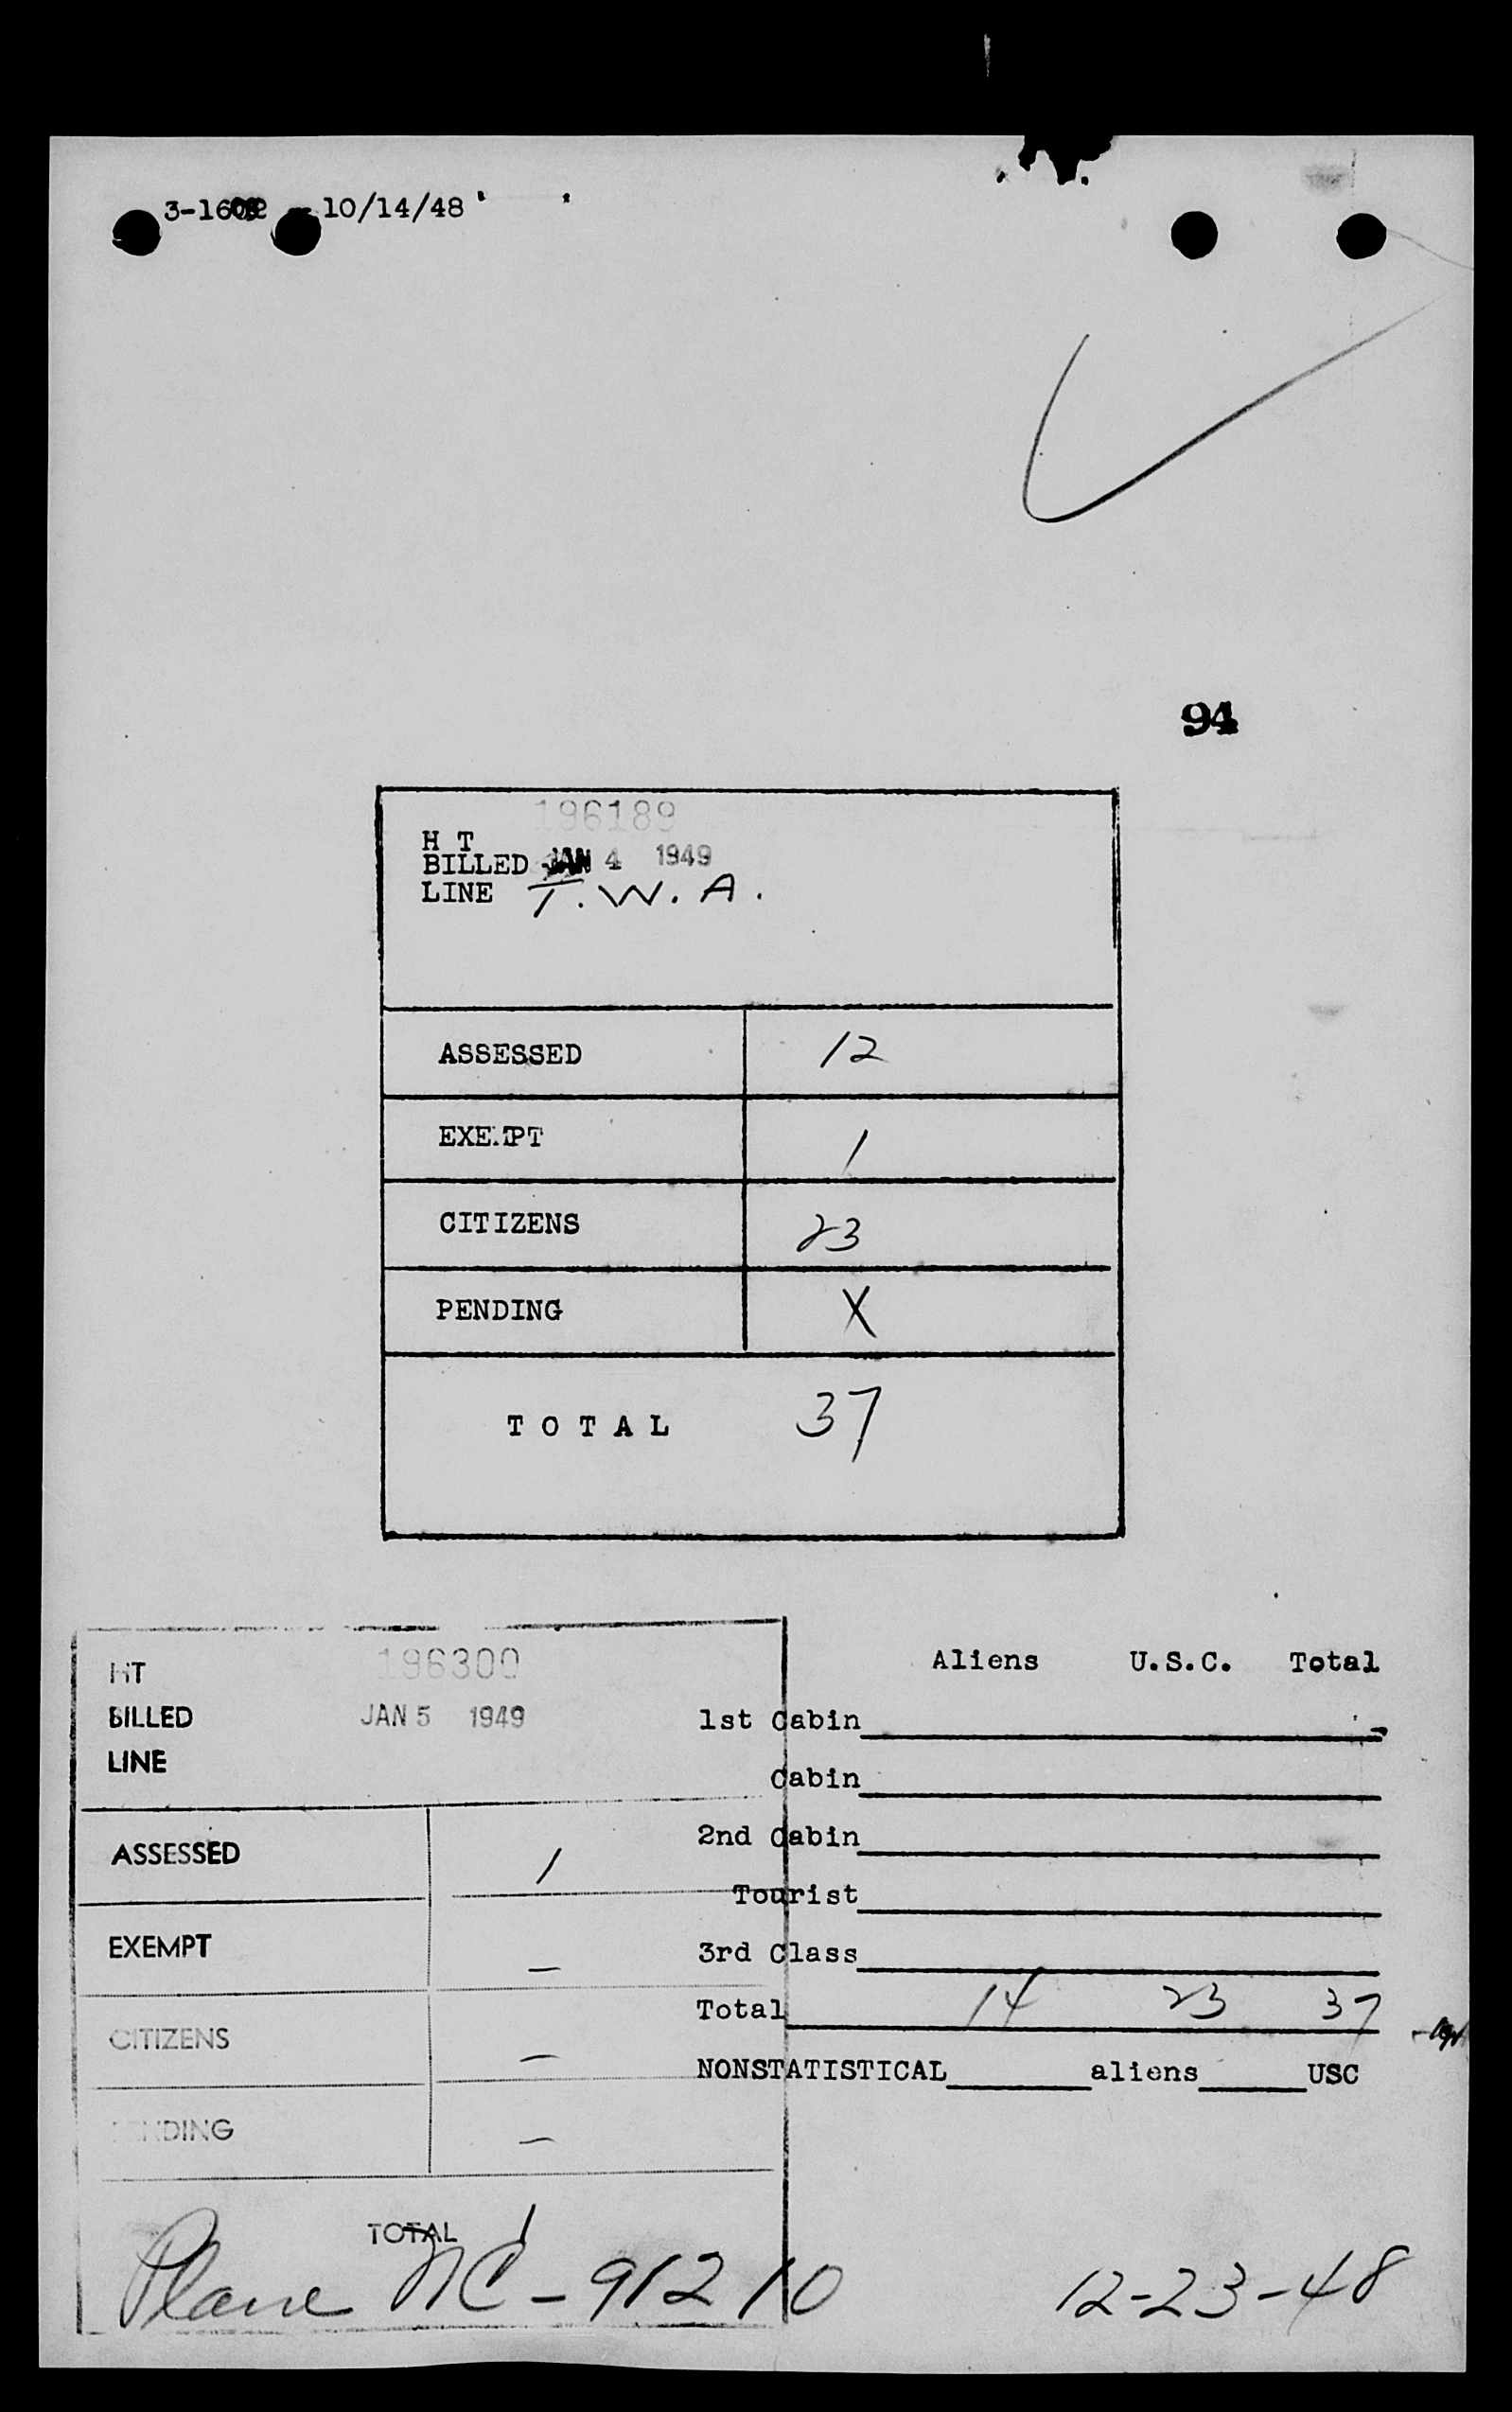 10/14/48
94
196189
H T
BILLED JAN 4 1949
LINE T.W.A.
ASSESSED 12
EXEMPT 1
CITIZENS 23
PENDING X
TOTAL 37
HT 196300
BILLED JAN 5 1949
LINE
ASSESSED 1
EXEMPT —
CITIZENS —
PENDING —
TOTAL 1
Aliens U.S.C. Total
1st Cabin
Cabin
2nd Cabin
Tourist
3rd Class
Total 14 23 37
NONSTATISTICAL aliens USC
Plane NC-91210 12-23-48